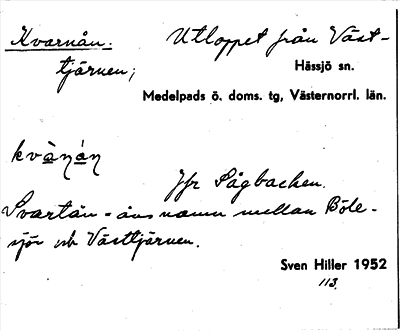 Kvarnån: Utloppet från Väst-
tjärnen; Hässjö sn.
Medelpads ö. doms. tg, Västernorrl. län.
kvànán
Jfr Sågbacken.
Svartån = åns namn mellan Böle-
sjön och Västtjärnen.
Sven Hiller 1952
113.